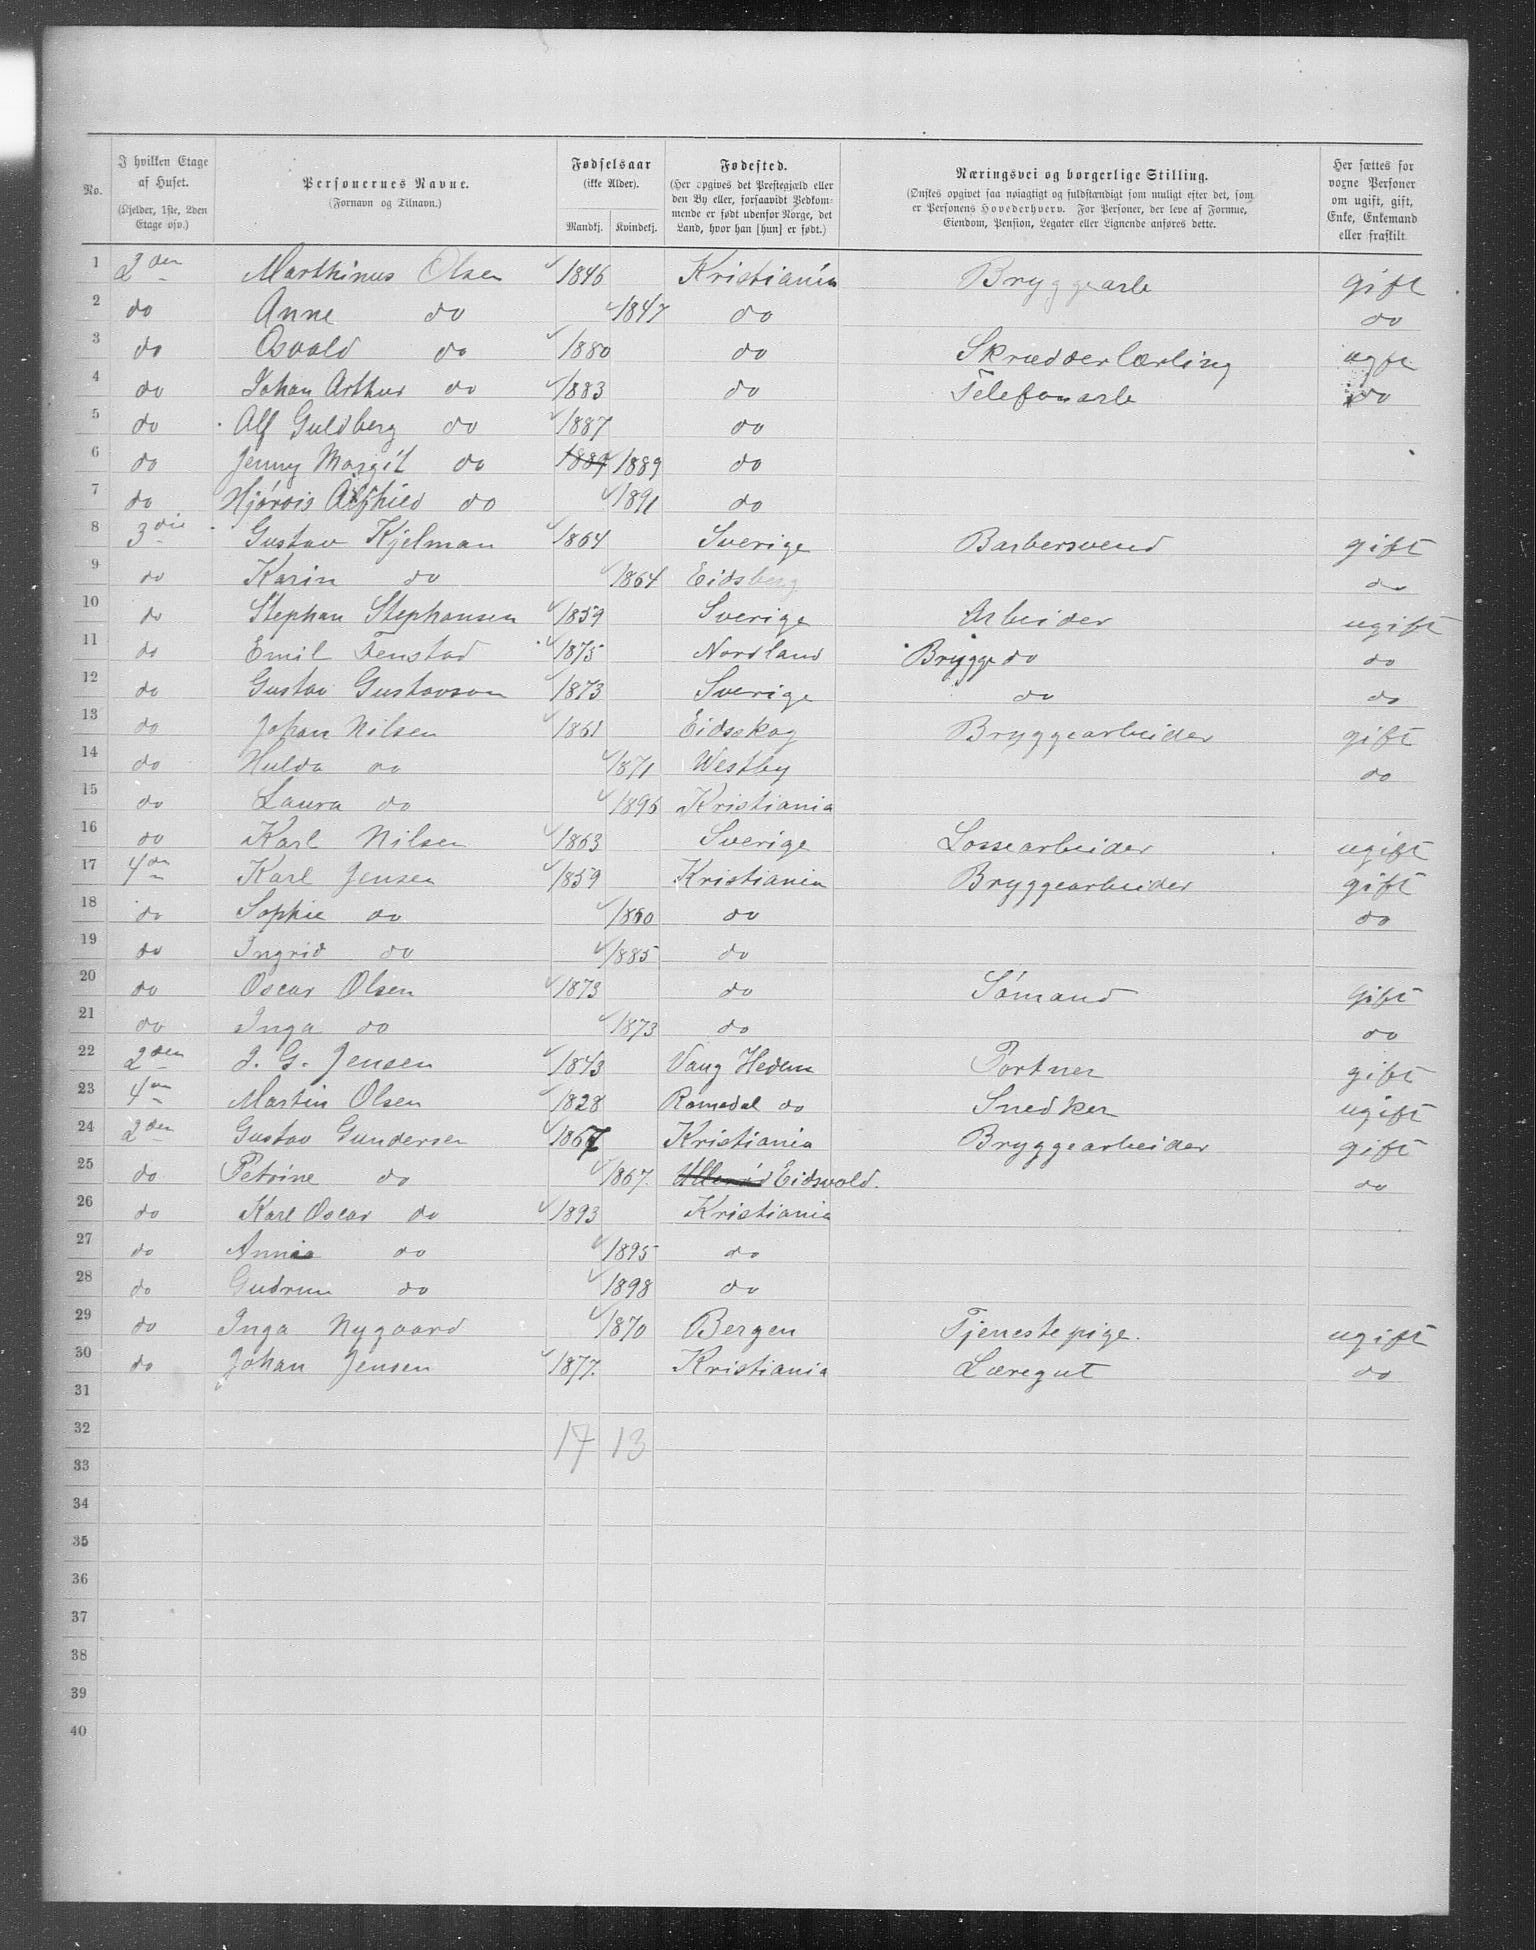 No. | I hvilken Etage af Huset. (Kjelder, 1ste, 2den Etage osv.) | Personernes Navne. (Fornavn og Tilnavn.) | Fødselsaar (ikke Alder). Mandkj. Kvindekj. | Fødested. (Her opgives det Prestegjæld eller den By eller, forsaavidt Vedkommende er født udenfor Norge, det Land, hvor han [hun] er født.) | Næringsvei og borgerlige Stilling. (Ønskes opgivet saa nøiagtigt og fuldstændigt som muligt efter det, som er Personens Hovederhverv. For Personer, der leve af Formue, Eiendom, Pension, Legater eller Lignende anføres dette. | Her sættes for voxne Personer om ugift, gift, Enke, Enkemand eller fraskilt
1 2den Marthinus Olsen 1846 Kristiania Bryggearb gift
2 do Anne do 1847 do do
3 do Osvald do 1880 do Skrædderlærling ugft
4 do Johan Arthur do 1883 do Telefonarb do
5 do Alf Guldberg do 1887 do
6 do Jenny Margit do 1889 1889 do
7 do Hjørdis do 1891 do
8 3die Gustav Kjelman 1864 Sverige Barbersvend gift
9 do Karin do 1864 Eidsberg do
10 do Stephan Stephansen 1859 Sverige Arbeider ugift
11 do Emil Tenstad 1875 Nordland Brygge do do
12 do Gustav Gustavson 1873 Sverige do do
13 do Johan Nilsen 1861 Eidsskog Bryggearbeider gift
14 do Hulda do 1871 Westby do
15 do Laura do 1896 Kristiania
16 do Karl Nilsen 1863 Sverige Lossearbeider ugift
17 4de Karl Jensen 1859 Kristiania Bryggearbeider gift
18 do Sophie do 1860 do do
19 do Ingrid do 1885 do
20 do Oscar Olsen 1873 do Sømand gift
21 do Inga do 1873 do do
22 2den J. G. Jensen 1843 Vang Hedem Portner gift
23 4de Martin Olsen 1828 Romedal do Snedker ugift
24 2den Gustav Gundersen 1867 Kristiania Bryggearbeider gift
25 do Petrine do 1867. Eidsvold. do
26 do Karl Oscar do 1893 Kristiania
27 do Anna do 1895 do
28 do Gudrun do 1898 do
29 do Inga Nygaard 1870 Bergen Tjenestepige. ugift
30 do Johan Jensen 1877. Kristiania Læregut do
31
32 17 13
33
34
35
36
37
38
39
40